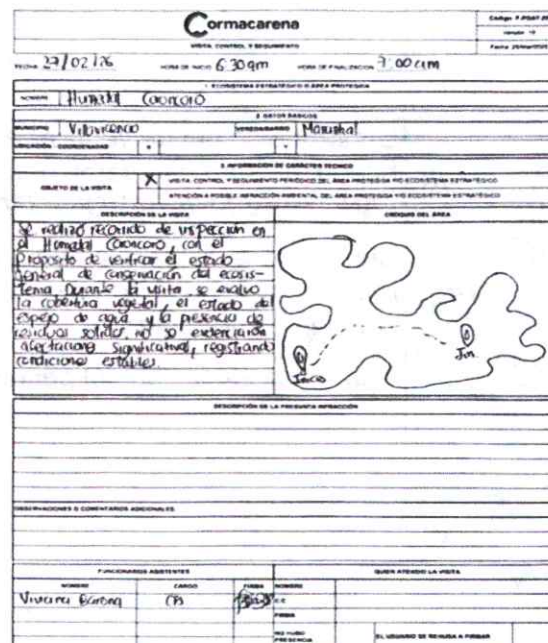 Cormacarena
VISITA, CONTROL Y SEGUIMIENTO
FECHA 27/02/26 HORA DE INICIO 6:30am HORA DE FINALIZACION 7:00am
1. ECOSISTEMA ESTRATÉGICO O ÁREA PROTEGIDA
NOMBRE Humedal Coroncoro
2. DATOS BÁSICOS
MUNICIPIO Villavicencio VEREDA/BARRIO Manantial
UBICACIÓN - COORDENADAS
3. INFORMACIÓN DE CARÁCTER TECNICO
OBJETO DE LA VISITA X VISITA, CONTROL Y SEGUIMIENTO PERIÓDICO DEL ÁREA PROTEGIDA Y/O ECOSISTEMA ESTRATÉGICO
ATENCIÓN A POSIBLE INFRACCIÓN AMBIENTAL DEL ÁREA PROTEGIDA Y/O ECOSISTEMA ESTRATÉGICO
DESCRIPCIÓN DE LA VISITA
Se realizó recorrido de inspección en
el Humedal Coroncoro, con el
proposito de verificar el estado
general de conservación del ecosis-
tema. Durante la visita se evaluo
la cobertura vegetal, el estado del
espejo de agua y la presencia de
residuos solidos, no se evidenciaron
afectaciones significativas, registrando
condiciones estables.
CROQUIS DEL ÁREA
Inicio
Fin
DESCRIPCIÓN DE LA PRESUNTA INFRACCIÓN
OBSERVACIONES O COMENTARIOS ADICIONALES
FUNCIONARIOS ASISTENTES
NOMBRE CARGO FIRMA
Viviana Barona CPS
QUIEN ATENDIO LA VISITA
NOMBRE
C.C
FIRMA
NO HUBO PRESENCIA
EL USUARIO SE REHUSA A FIRMAR